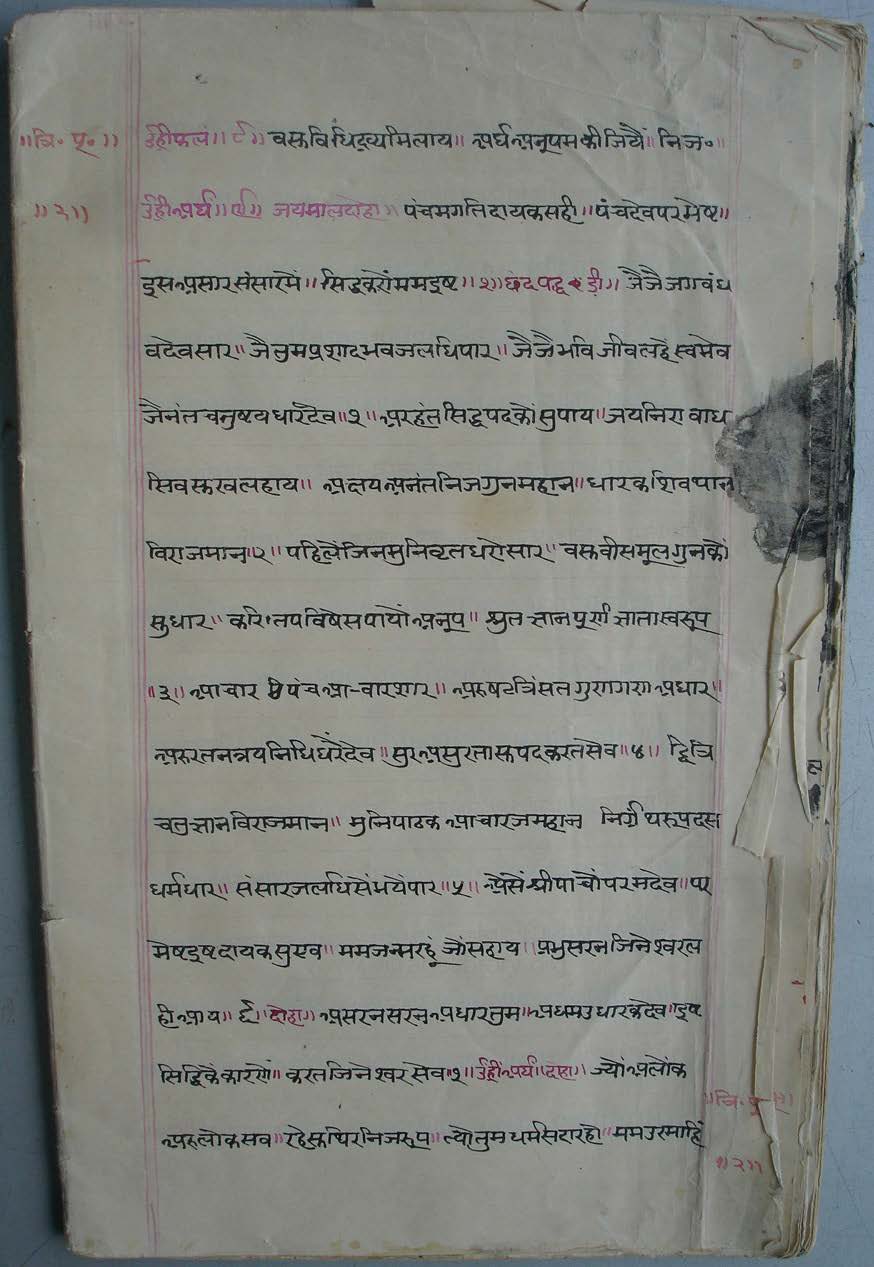 ॥त्रि॰ पू॰॥ उंह्रीफलं॥८॥ वसुविधिद्रव्यमिलाय॥ अर्घअनूपमकीजियै॥ निज॰
॥२॥ उंह्रीअर्घं॥९॥ जयमालदोहा॥ पंचमगतिदायकसही॥पंचदेवपरमेष्ट॥
इसअसारसंसारमैं॥सिद्धकरोंममइष्ट॥१॥छंदपद्धडी॥ जैजैजगबंध
वदेवसार॥ जैतुमप्रशादभवजलधिपार॥ जैजैभविजीवलहैस्वमेव
जैनंतचतुष्टयधारदेव॥१॥ अरहंतसिद्धपदकौंसुपाय॥जयनिरावाध
सिवसुखलहाय॥ अक्षयअनंतनिजगुनमहान॥धारकशिवथान
विराजमान॥२॥ पहिलैंजिनमुनिवृतधरोसार॥ वसुवीसमूलगुनकौं
सुधार॥ करितपविषेसपायौअनूप॥ श्रुतज्ञानपूर्णज्ञातास्वरूप
॥३॥ आचारपंचआचारशार॥ अरुषटत्रिंसतगुणगणअधार॥
अरुरतनत्रयनिधिधरैंदेव॥सुरअसुरतासुपदकरतसेव॥४॥ द्वित्रि
चतुज्ञानविराजमान॥ मुनिपाठकआचारजमहान निर्ग्रंथरूपदस
धर्मधार॥ संसारजलधिसेंभयेंपार॥५॥ ऐसेंश्रीपाचौंपरमदेव॥पर
मेष्टइष्टदायकसुएव॥ ममजन्मरहूंजौंसहाय॥प्रभुसरनजिनेश्वरल
हीआय॥६॥दोहा॥ असरनसरनअधारतुम॥अधमउधारकदेव॥इष्ट
सिद्धिकेकारणें॥ करतजिनेश्वरसेव॥१॥उंह्रींअर्घ॥दोहा॥ ज्यौंअलोक
अरुलोकसव॥रहेसुथिरनिजरूप॥त्यौतुमधर्मसदारहो॥ममउरमाहिं
॥त्रि॰पू॰॥
॥२॥